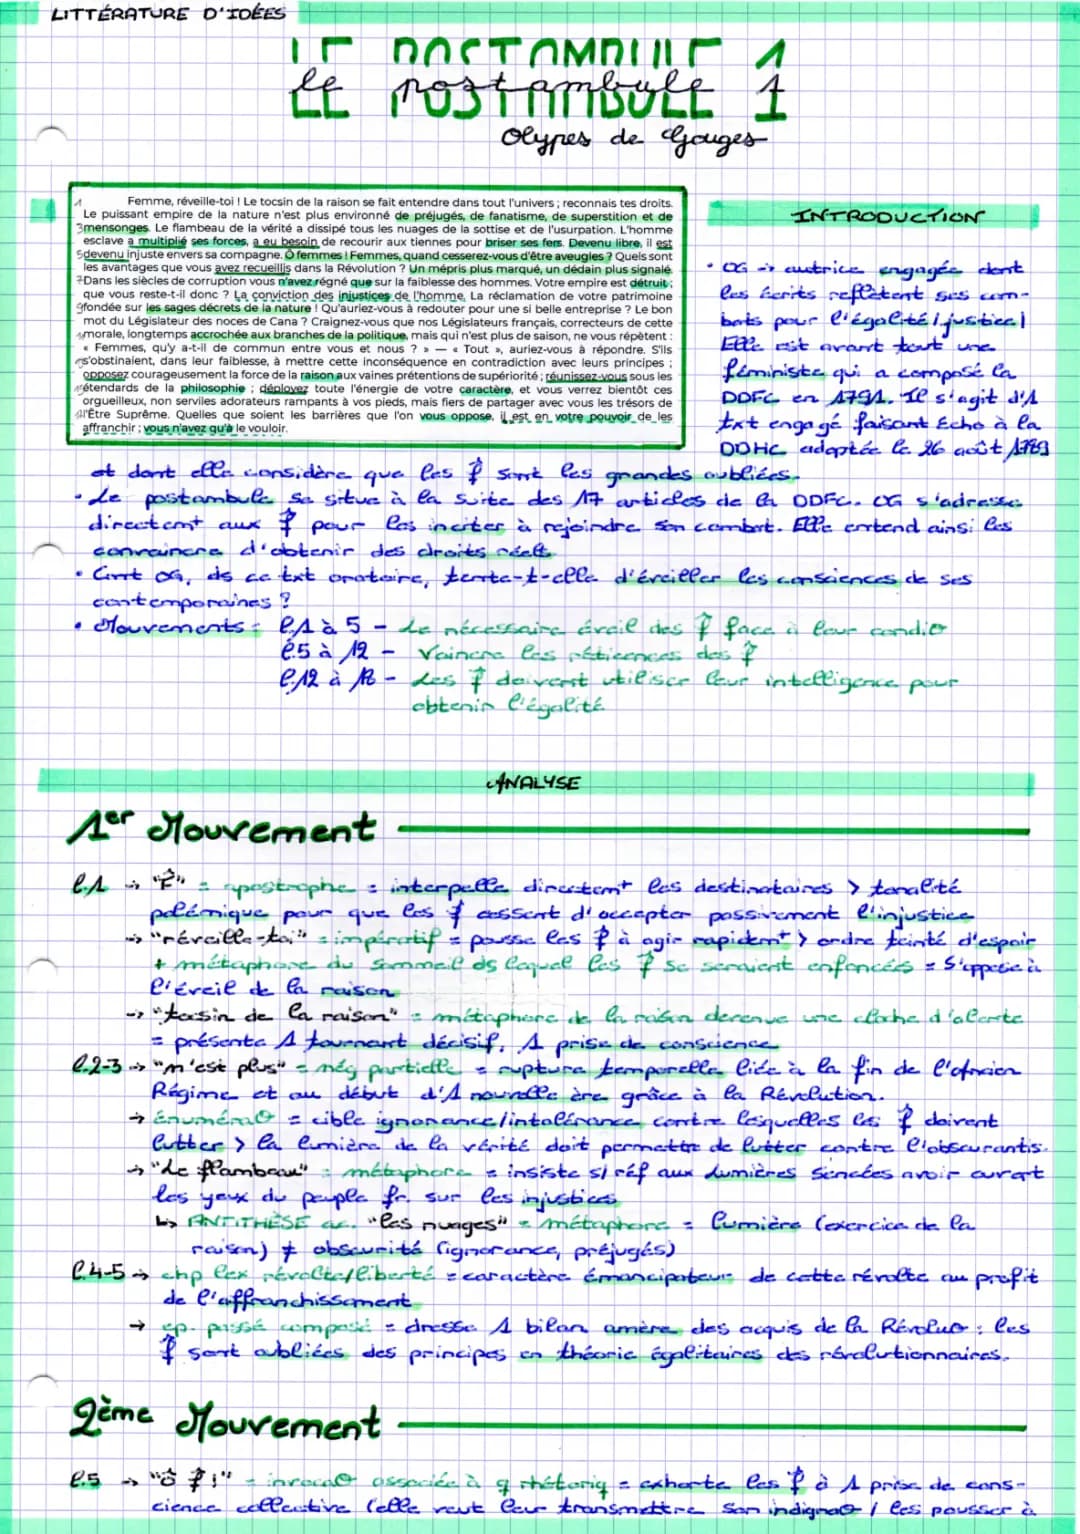 LITTÉRATURE D'IDÉES
LE POSTAMBULE 1
le postambule 1
Olypes de Gouges
Femme, réveille-toi ! Le tocsin de la raison se fait entendre dans tout l'univers ; reconnais tes droits.
Le puissant empire de la nature n'est plus environné de préjugés, de fanatisme, de superstition et de
3 mensonges. Le flambeau de la vérité a dissipé tous les nuages de la sottise et de l'usurpation. L'homme
esclave a multiplié ses forces, a eu besoin de recourir aux tiennes pour briser ses fers. Devenu libre, il est
5 devenu injuste envers sa compagne. Ô femmes ! Femmes, quand cesserez-vous d'être aveugles ? Quels sont
les avantages que vous avez recueillis dans la Révolution ? Un mépris plus marqué, un dédain plus signalé.
7 Dans les siècles de corruption vous n'avez régné que sur la faiblesse des hommes. Votre empire est détruit ;
que vous reste-t-il donc ? La conviction des injustices de l'homme. La réclamation de votre patrimoine
9 fondée sur les sages décrets de la nature ! Qu'auriez-vous à redouter pour une si belle entreprise ? Le bon
mot du Législateur des noces de Cana ? Craignez-vous que nos Législateurs français, correcteurs de cette
morale, longtemps accrochée aux branches de la politique, mais qui n'est plus de saison, ne vous répètent :
« Femmes, qu'y a-t-il de commun entre vous et nous ? » — « Tout », auriez-vous à répondre. S'ils
s'obstinaient, dans leur faiblesse, à mettre cette inconséquence en contradiction avec leurs principes ;
opposez courageusement la force de la raison aux vaines prétentions de supériorité ; réunissez-vous sous les
étendards de la philosophie ; déployez toute l'énergie de votre caractère, et vous verrez bientôt ces
orgueilleux, non serviles adorateurs rampants à vos pieds, mais fiers de partager avec vous les trésors de
l'Être Suprême. Quelles que soient les barrières que l'on vous oppose, il est en votre pouvoir de les
affranchir ; vous n'avez qu'à le vouloir.
INTRODUCTION
• OG → autrice engagée dont
les écrits reflètent ses com-
bats pour l'égalité / justice /
Elle est avant tout une
féministe qui a composé la
DDFC en 1791. Il s'agit d'1
txt engagé faisant Echo à la
DDHC adoptée le 26 août 1789
et dont elle considère que les f sont les grandes oubliées.
• Le postambule se situe à la suite des 17 articles de la DDFC. OG s'adresse
directemt aux f pour les inciter à rejoindre son combat. Elle entend ainsi les
convaincre d'obtenir des droits réels
• Cmt OG, ds ce txt oratoire, tente-t-elle d'éveiller les consciences de ses
contemporaines ?
• Mouvements : l.1 à 5 - Le nécessaire éveil des f face à leur condi⊕
l.5 à 12 - Vaincre les réticences des f
l.12 à 18 - Les f doivent utiliser leur intelligence pour
obtenir l'égalité
ANALYSE
1er Mouvement
l.1 → "F" = apostrophe = interpelle directemt les destinataires > tonalité
polémique pour que les f cessent d'accepter passivement l'injustice
→ "réveille-toi" = impératif = pousse les f à agir rapidemt > ordre teinté d'espoir
+ métaphore du sommeil ds lequel les f se seraient enfoncées = S'oppose à
l'éveil de la raison
→ "tocsin de la raison" = métaphore de la raison devenue une cloche d'alerte
= présente 1 tournant décisif, 1 prise de conscience
l.2-3 → "n'est plus" = nég partielle = rupture temporelle liée à la fin de l'Ancien
Régime et au début d'1 nouvelle ère grâce à la Révolution.
→ énuméra⊕ = cible ignorance/intolérance contre lesquelles les f doivent
lutter > la lumière de la vérité doit permettre de lutter contre l'obscurantis.
→ "Le flambeau" = métaphore = insiste s/ réf aux Lumières sencées avoir ouvert
les yeux du peuple fr. sur les injustices
↳ ANTITHÈSE av. "les nuages" = métaphore = lumière (exercice de la
raison) ≠ obscurité (ignorance, préjugés)
l.4-5 → chp lex révolte/liberté = caractère émancipateur de cette révolte au profit
de l'affranchissement
→ cp. passé composé = dresse 1 bilan amère des acquis de la Révolu⊕ : les
f sont oubliées des principes en théorie égalitaires des révolutionnaires.
2ème Mouvement
l.5 → "ô f !" = invoca⊕ associée à q rhétoriq = exhorte les f à 1 prise de cons-
cience collective (elle veut leur transmettre son indigna⊕ / les pousser à